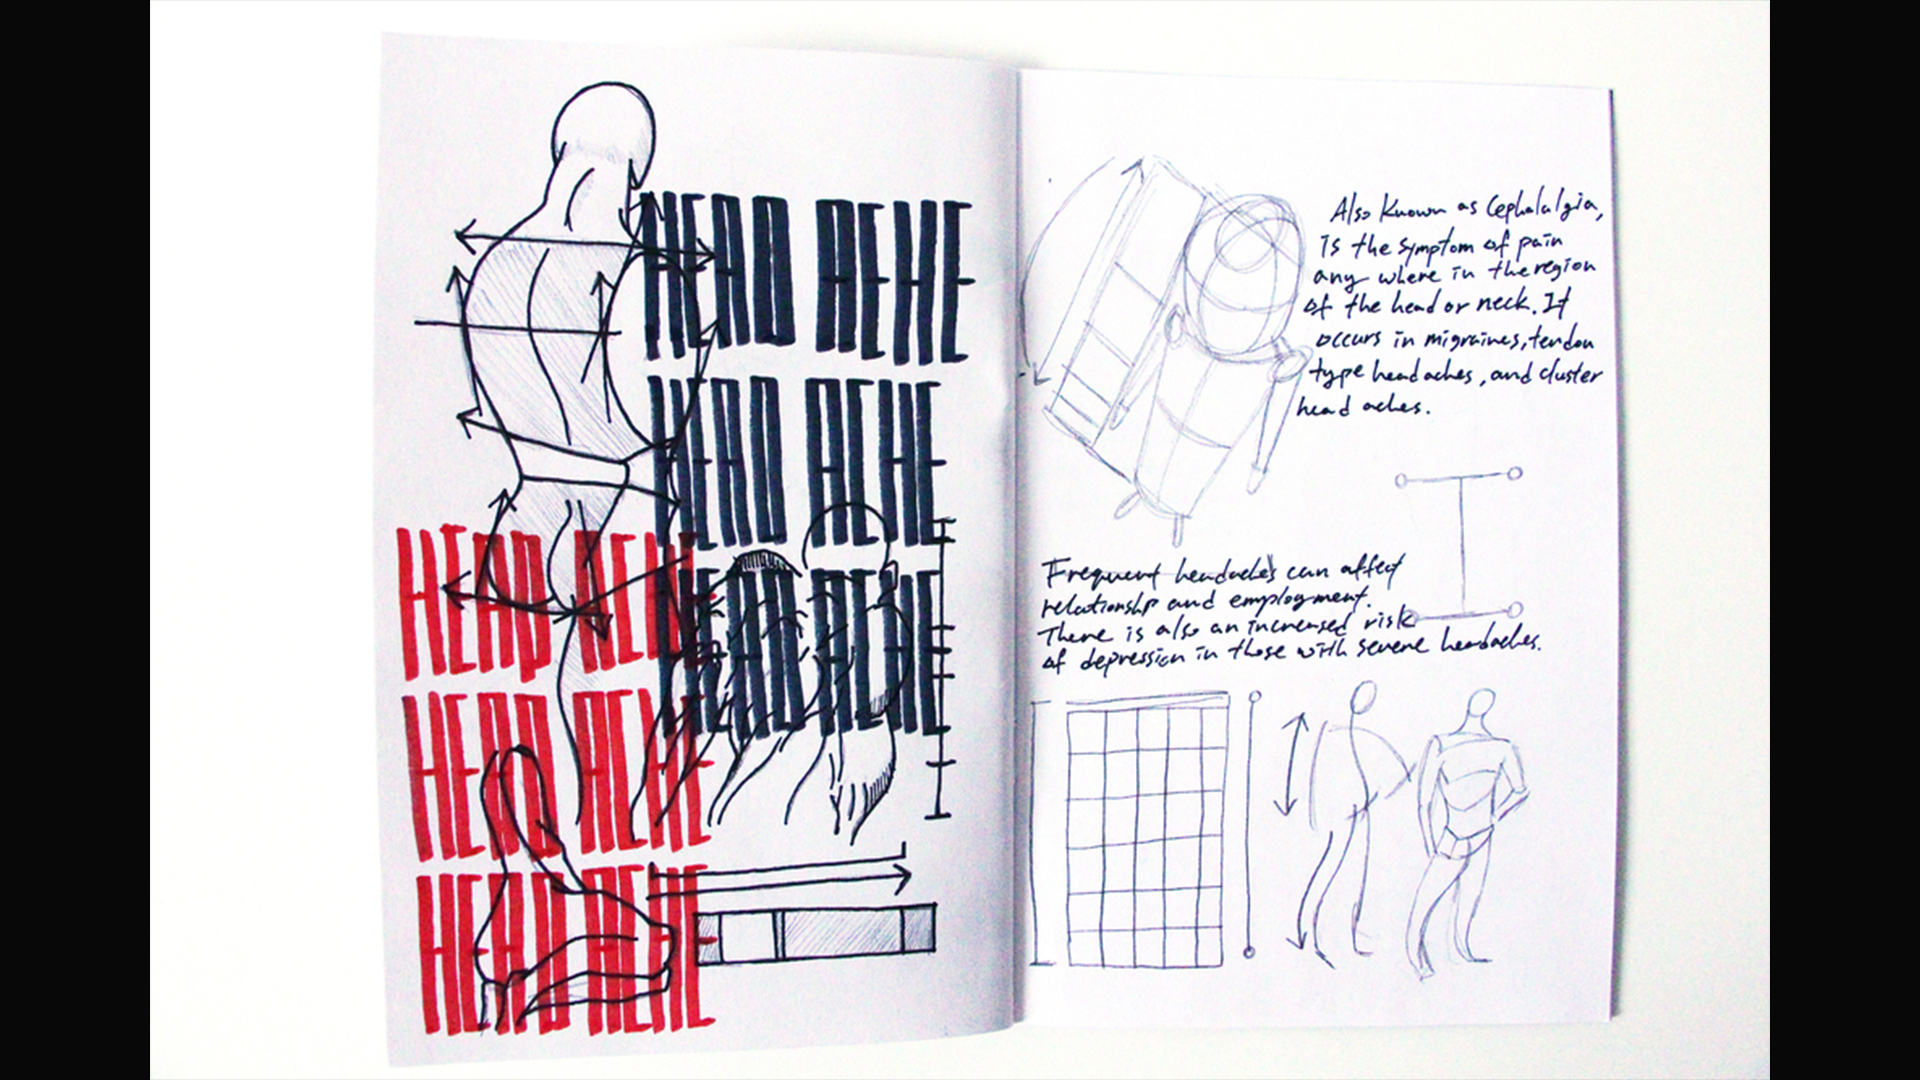 HEAD ACHE
HEAD ACHE
HEAD ACHE
HEAD ACHE
HEAD ACHE
HEAD ACHE
Also Known as Cephalalgia,
Is the symptom of pain
any where in the region
of the head or neck. It
occurs in migraines, tendon
type headaches, and cluster
head aches.
Frequent headaches can affect
relationship and employment.
There is also an increased risk
of depression in those with severe headaches.